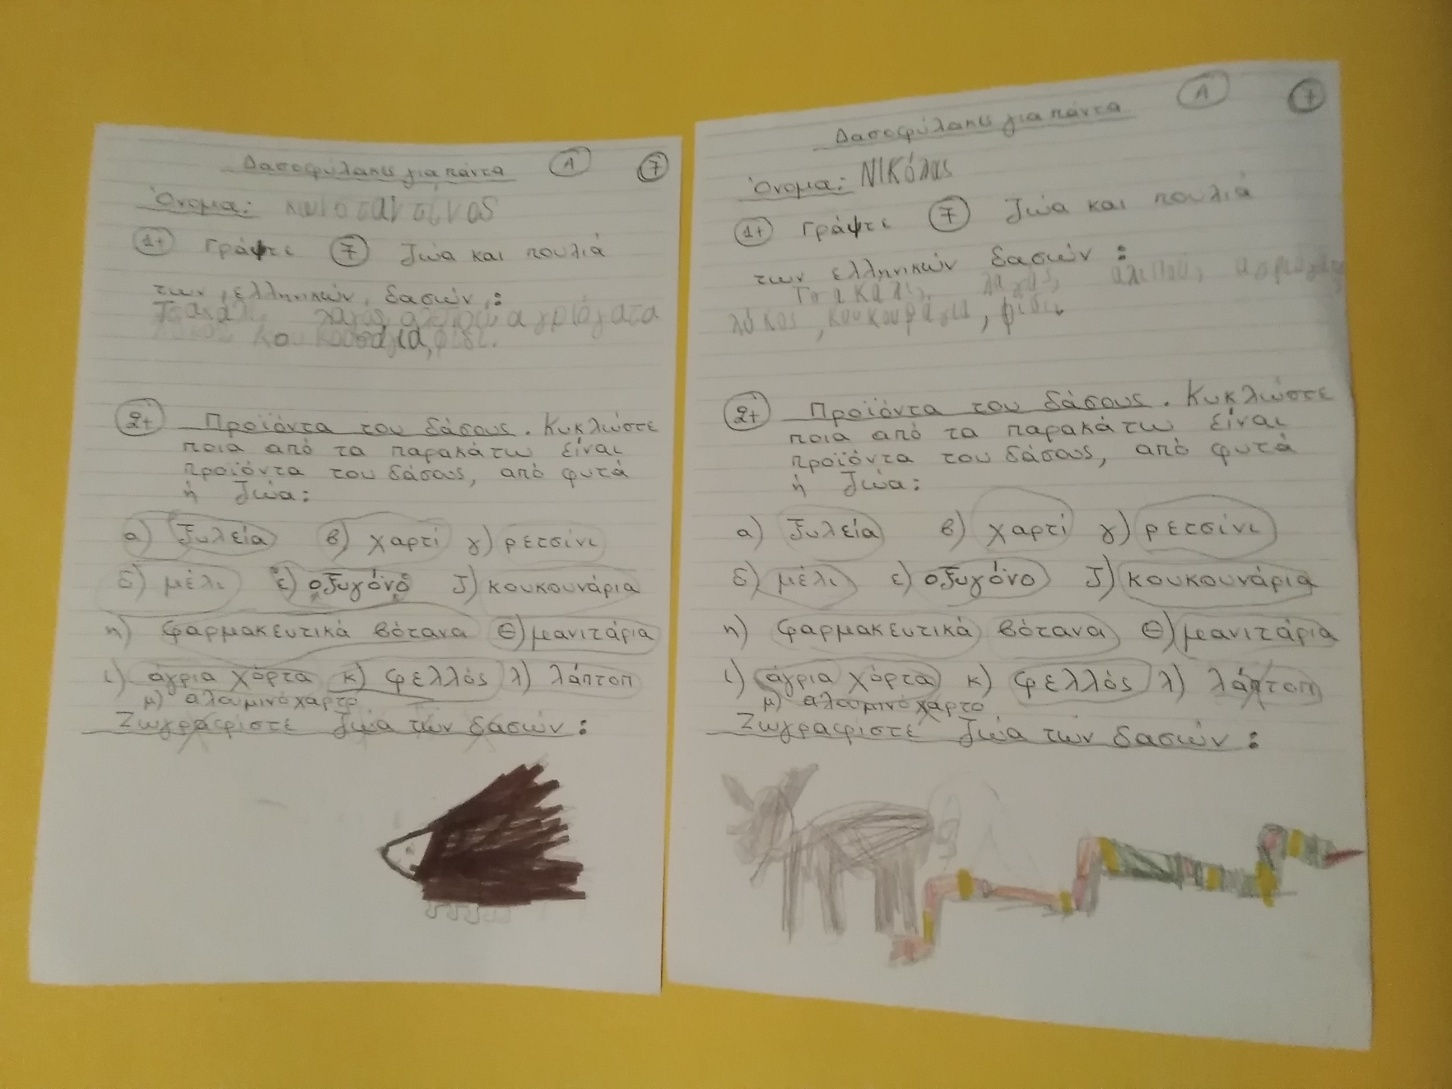 Δασοφύλακες για πάντα Α 7
Όνομα: κωνσταντίνος
1+ Γράψτε 7 ζώα και πουλιά
των ελληνικών δασών:
Τσακάλι λαγός αλεπού αγριόγατα
λύκος κουκουβάγια, φίδι.
2+ Προϊόντα του δάσους. Κυκλώστε
ποια από τα παρακάτω είναι
προϊόντα του δάσους, από φυτά
ή ζώα:
α) ξυλεία β) χαρτί γ) ρετσίνι
δ) μέλι ε) οξυγόνο ζ) κουκουνάρια
η) φαρμακευτικά βότανα θ) μανιτάρια
ι) άγρια χόρτα κ) φελλός λ) λάπτοπ
μ) αλουμινόχαρτο
Ζωγραφίστε ζώα των δασών:
Δασοφύλακες για πάντα Α 7
Όνομα: ΝΙΚόλας
1+ Γράψτε 7 ζώα και πουλιά
των ελληνικών δασών:
Τσακάλι, λαγός, αλεπού,
λύκος, κουκουβάγια, φίδι
2+ Προϊόντα του δάσους. Κυκλώστε
ποια από τα παρακάτω είναι
προϊόντα του δάσους, από φυτά
ή ζώα:
α) ξυλεία β) χαρτί γ) ρετσίνι
δ) μέλι ε) οξυγόνο ζ) κουκουνάρια
η) φαρμακευτικά βότανα θ) μανιτάρια
ι) άγρια χόρτα κ) φελλός λ) λάπτοπ
μ) αλουμινόχαρτο
Ζωγραφίστε ζώα των δασών: